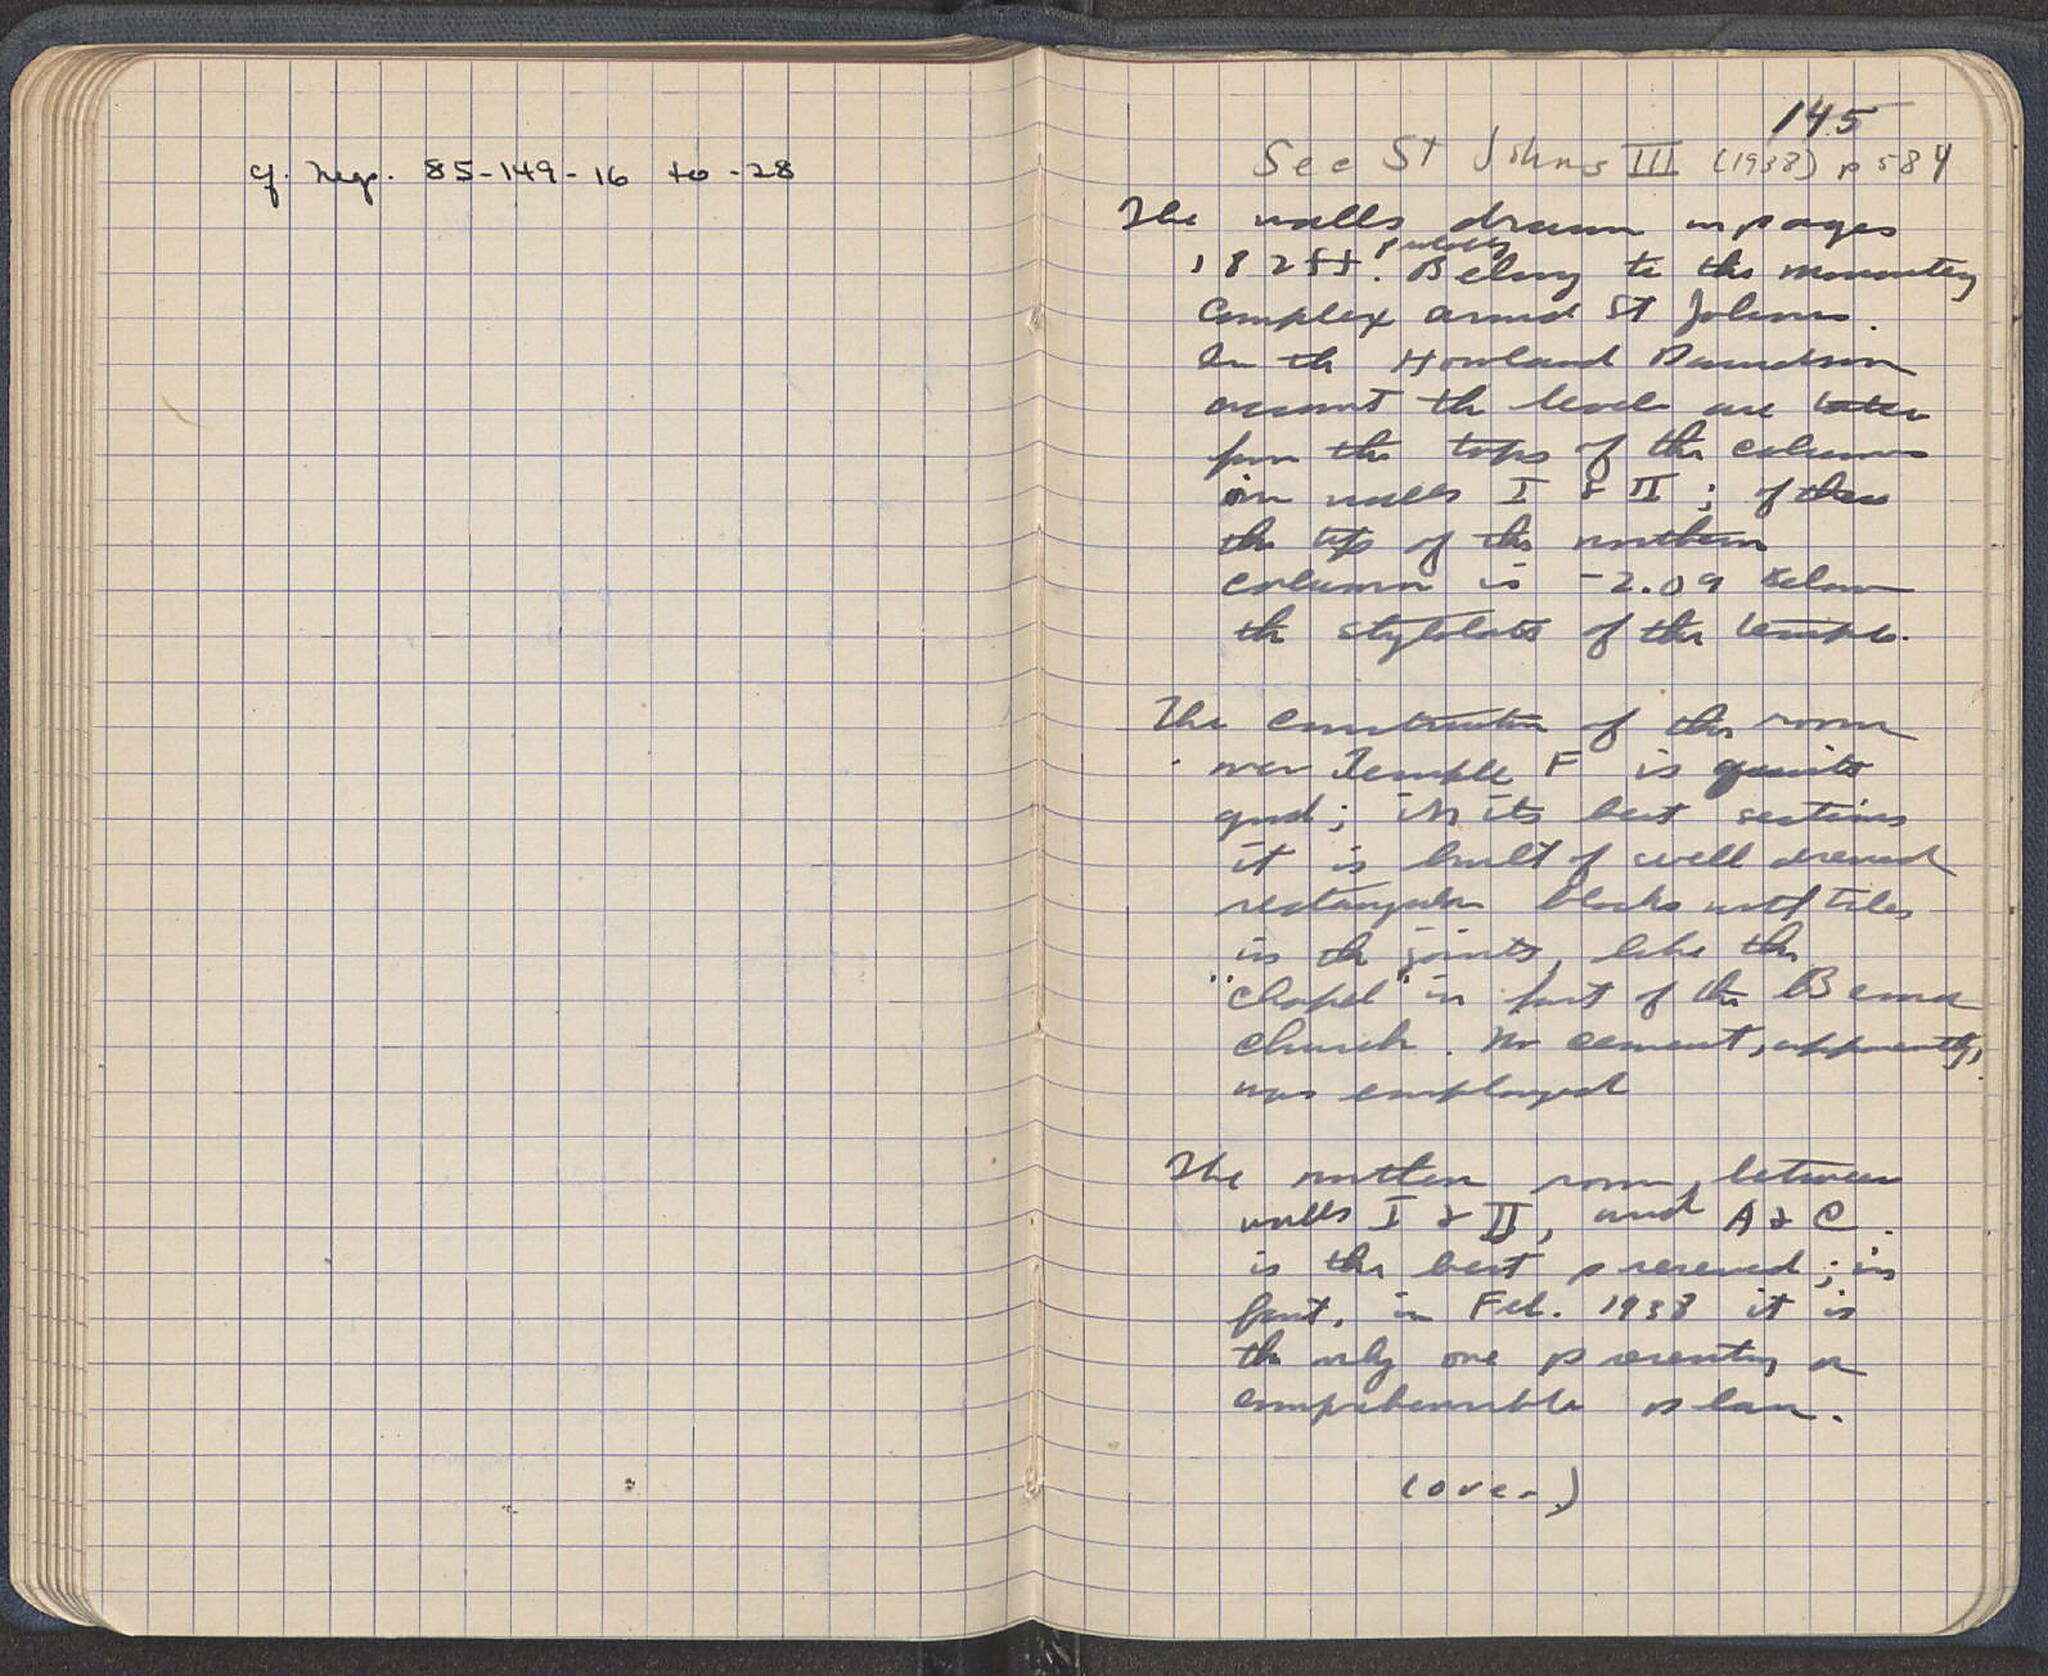 cf. Negs. 85-149-16 to -28
145
See St Johns III (1938) p 584
The walls drawn in pages
182 ff. probably Belong to the monastery
complex around St Johns.
In the Howland Davidson
account the levels are taken
from the tops of the columns
in walls I & II ; of these
the top of the northern
column is -2.09 below
the stylobate of the temple.
The construction of the room
over Temple F is quite
good ; in its best sections
it is built of well dressed
rectangular blocks with tiles
in the joints, like the
"chapel" in part of the Bema
church. No cement, apparently,
was employed
The northern room, between
walls I & II, and A & C
is the best preserved ; in
fact, in Feb. 1938 it is
the only one presenting a
comprehensible plan.
(over)